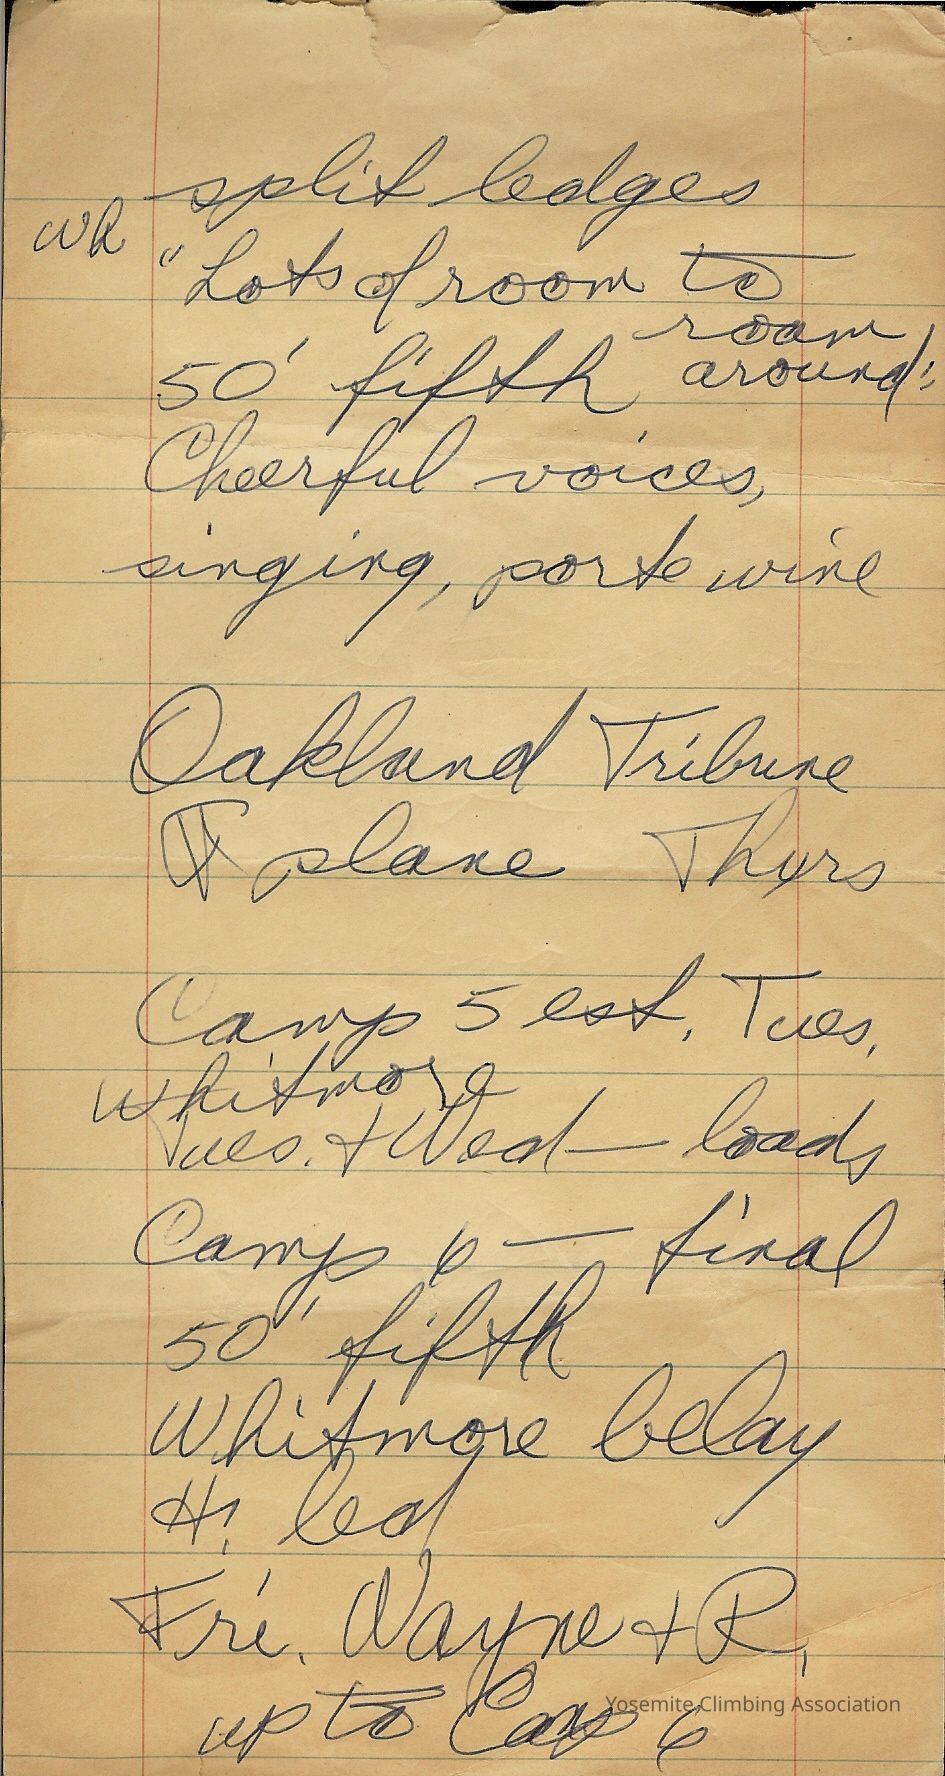 split ledges
WR
"Lots of room to
room
around",
50' fifth
Cheerful voices,
singing, porte wine
Oakland Tribune
plane Thurs
Camp 5 est. Tues,
Whitmore
Tues. + Wed — loads
Camp 6 — final
50' fifth
Whitmore belay
H! led
Fri. Wayne + R,
up to Cap 6
Yosemite Climbing Association